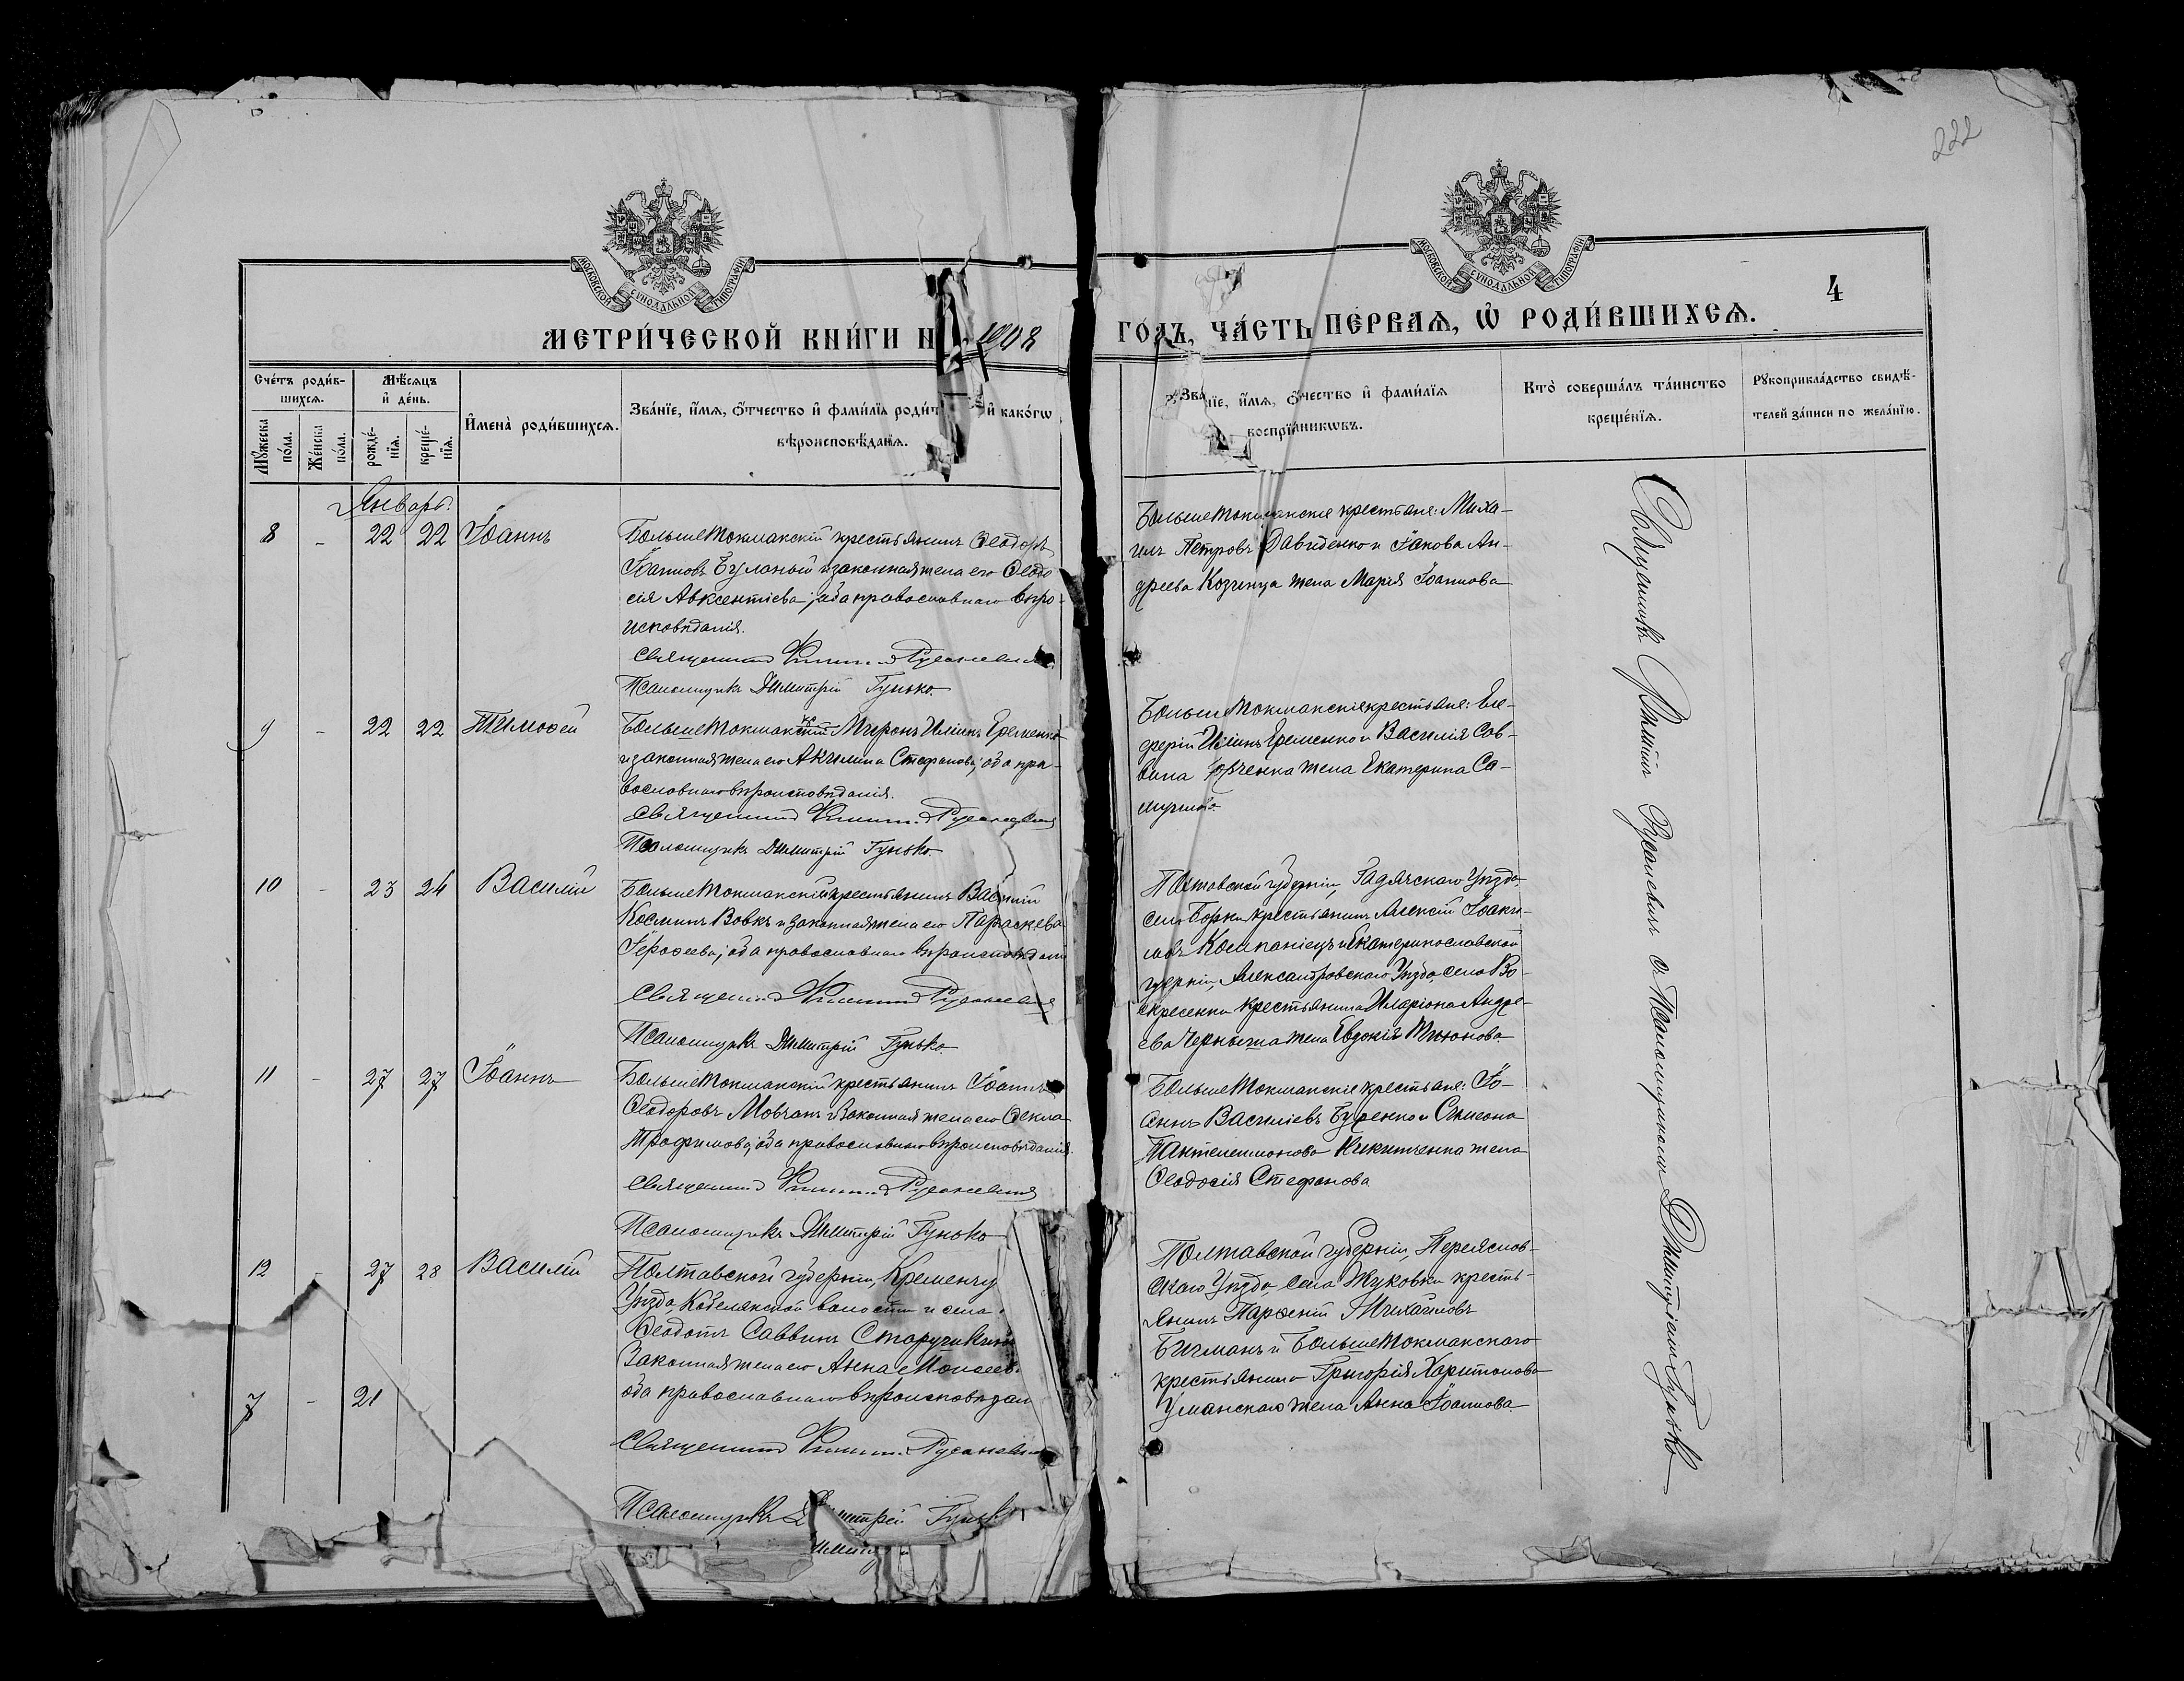 222
МОСКОВСКОЙ СУНОДАЛЬНОЙ ТИПОГРАФІИ
МОСКОВСКОЙ СУНОДАЛЬНОЙ ТИПОГРАФІИ
4
МЕТРИ́ЧЕСКОЙ КНИ́ГИ Н 1908 ГО́ДЪ, ЧА́СТЬ ПЕ́РВАѦ, Ѡ РОДИ́ВШИХСѦ.
Сче́тъ роди́в-
шихсѧ.
Мꙋ́жеска по́ла.
Же́нска по́ла.
Мѣ́сѧцъ
и҆ де́нь.
рожде́-
нїѧ.
креще́-
нїѧ.
И҆мена̀ роди́вшихсѧ.
Зва́нїе, и҆́мѧ, ѻ҆́тчество и҆ фами́лїѧ роди́т и҆ како́гѡ
вѣроисповѣ́данїѧ.
Зва́нїе, и҆́мѧ, ѻ҆́чество и҆ фами́лїѧ
воспрїе́мникѡвъ.
Кто̀ соверша́лъ та́инство
креще́нїѧ.
Рꙋкоприкла́дство свидѣ́-
телей за́писи по жела́нїю.
Январь.
8 - 22 22 Іоаннъ
БольшеТокмакскій крестьянинъ Ѳеодоръ
Іоанновъ Буланый и законная жена его Ѳеодо
сія Авксентіева; оба православнаго вѣро-
исповѣданія.
Священникъ
Псаломщикъ Димитрій Гунько.
БольшеТокмакскіе крестьяне: Миха-
илъ Петровъ Давиденко и Іакова Ан-
дреева Козинца жена Марія Іоаннова
9 - 22 22 Тимоѳей
БольшеТокмакскій Миронъ Иліинъ Еременко
и законная жена его Акилина Стефанова; оба пра-
вославнаго вѣроисповѣданія.
Священникъ
Псаломщикъ Димитрій Гунько.
БольшеТокмакскіе крестьяне: Еле-
ферій Иліинъ Еременко и Василія Сав-
вина жена Екатерина Са-
муилова
10 - 23 24 Василій
БольшеТокмакскій крестьянинъ Василій
Косминъ Вовкъ и законная жена его Параскева
Іероѳеева; оба православнаго вѣроисповѣданія
Священникъ
Псаломщикъ Димитрій Гунько.
Полтавской губерніи, Гадячскаго Уѣзда,
села Борки крестьянинъ Алексій Іоаки-
мовъ Компаніецъ и Екатеринославской
губерніи, Александровскаго Уѣзда, села Во-
скресенки крестьянина Иларіона Андре-
ева Черныша жена Евдокія
11 - 27 27 Іоаннъ
БольшеТокмакскій крестьянинъ Іоаннъ
Ѳеодоровъ Мовчанъ и законная жена его Ѳекла
Трофимова; оба православнаго вѣроисповѣданія.
Священникъ
Псаломщикъ Димитрій Гунько
БольшеТокмакскіе крестьяне: Іо-
аннъ Василіевъ Буренко и Симеона
Пантелеимонова Никитченка жена
Ѳеодосія Стефанова
12 - 27 28 Василій
Полтавской губерніи, Кременчу
Уѣзда, Кобелякской волости и села
Ѳеодотъ Саввинъ
Законная жена его Анна Моисеев.
оба православнаго вѣроисповѣдан
Священникъ
Псаломщикъ Димитрій Гуньк
Полтавской губерніи, Переяслов-
скаго Уѣзда, села Жуковки кресть-
янинъ Парѳеній Михайловъ
Бигманъ и БольшеТокмакскаго
крестьянина Григорія Харитонова
Уманскаго жена Анна Іоаннова
7 - 21
Священникъ Филиппъ Русаневич съ Псаломщикомъ Димитріемъ Гунько